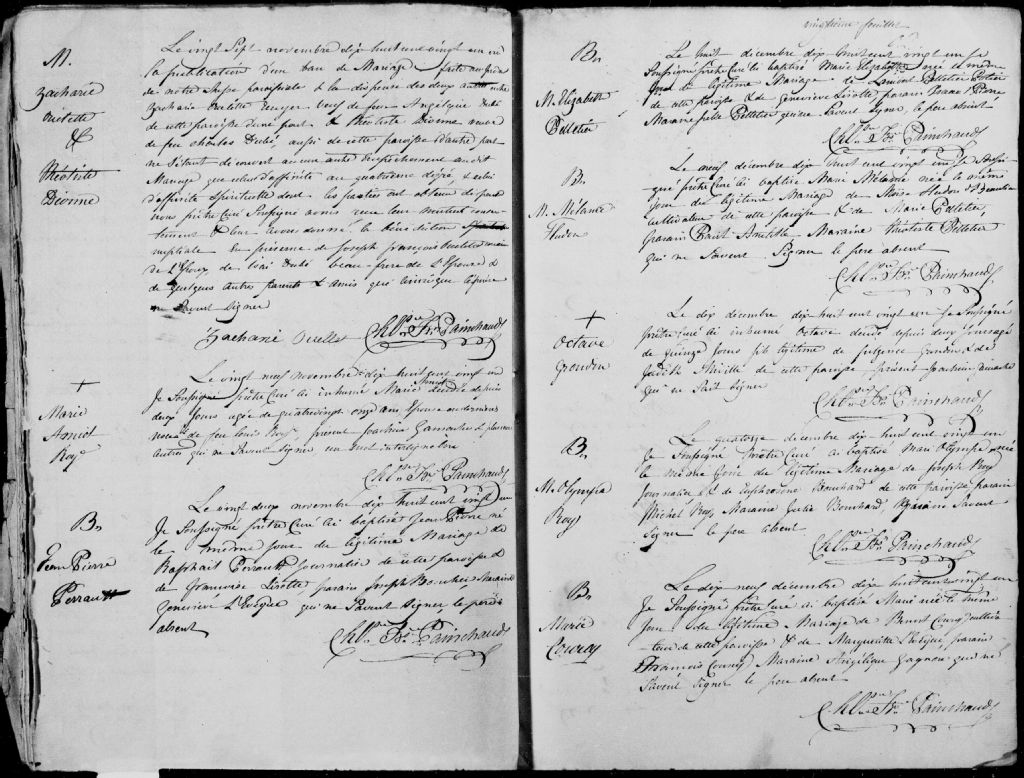 M.
Zacharie
Ouellette
&
Théotiste
Dionne
Le vingt Sept novembre dix huit cent vingt un vu
la publication d'un ban de Mariage faite au prône
de notre Messe paroissiale & la dispense des deux autres entre
Zacharie Ouellette veuf de feue Angélique Dubé
de cette paroisse d'une part & Théotiste Dionne veuve
de feu Charles Dubé, aussi de cette paroisse d'autre part
ne s'étant découvert aucun autre Empêchement au dit
Mariage que celui d'affinité au quatrième degré & celui
d'affinité Spirituelle dont les parties ont obtenu dispense
nous prêtre Curé Soussigné avons reçu leur mutuel consen-
tement & leur avons donné la bénédiction
nuptiale en présence de Joseph François Ouellette
de l'Epoux de Isaï Dubé beau-frere de l'Epouse &
de quelques autres parents & amis qui ainsi que l'épouse
ne Savent Signer
Zacharie Ouellet Chls Frs Painchaud Ptre
+
Marie
Amiot
Roy
Le vingt neuf novembre dix huit cent vingt un
Je Soussigné prêtre Curé ai inhumé Marie Amiot décédée depuis
deux jours agée de quatrevingt onze ans Epouse en dernieres
noces de feu Louis Roy, présent Joachim Gamache & plusieurs
autres qui ne Savent Signer un mot interligne bon
Chls Frs Painchaud Ptre
B.
Jean Pierre
Perrault
Le vingt deux novembre dix huit cent vingt un
Je Soussigné prêtre Curé ai baptisé Jean Pierre né
le même jour du légitime Mariage de
Raphaël Perrault Journalier de cette paroisse &
de Genevieve Lizotte, parain Joseph Boucher Maraine
Genevieve L'Evêque qui ne Savent Signer le pere
absent
Chls Frs Painchaud Ptre
vingtième feuillet
B.
M. Elizabeth
Pelletier
Le huit décembre dix huit cent vingt un Je
Soussigné prêtre Curé ai baptisé Marie Elizabeth née le même
jour du légitime Mariage de Lambert Pelletier
de cette paroisse & de Genevieve Lizotte parain
Maraine Pelletier qui ne Savent Signer le pere absent
Chls Frs Painchaud Ptre
B.
M. Mélanie
Hudon
Le neuf décembre dix huit cent vingt un Je Soussi-
gné prêtre Curé ai baptisé Marie Mélanie née le même
jour du légitime Mariage de Moïse Hudon dt Beaulieu
cultivateur de cette paroisse & de Marie Pelletier,
parain Maraine Théotiste Pelletier
qui ne Savent Signer le pere absent
Chls Frs Painchaud Ptre
+
Octave
Grondin
Le dix décembre dix huit cent vingt un Je Soussigné
prêtre Curé ai inhumé Octave décédé depuis deux jours agé
de quinze jours fils légitime de Fulgence Grondin & de
Judith Miville de cette paroisse, présent Joachim Gamache
qui ne Sait Signer
Chls Frs Painchaud Ptre
B.
M. Olympe
Roy
Le quatorze décembre dix huit cent vingt un
Je Soussigné Prêtre Curé ai baptisé Marie Olympe née
le même jour du légitime Mariage de Joseph Roy
Journalier & de Euphrosine Bouchard de cette paroisse parain
Michel Roy, Maraine Julie Bouchard qui ne Savent
Signer le pere absent
Chls Frs Painchaud Ptre
B.
Marie
Courcy
Le dix neuf décembre dix huit cent vingt un
Je Soussigné prêtre Curé ai baptisé Marie née le même
jour du légitime Mariage de Benoit Courcy cultiva-
teur de cette paroisse & de Marguerite L'Evêque parain
François Courcy Maraine Angélique Gagnon qui ne
Savent Signer le pere absent
Chls Frs Painchaud Ptre